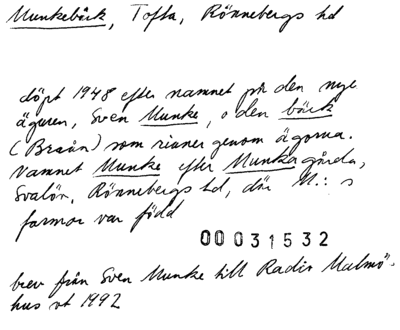 Munkebäck, Tofta, Rönnebergs hd
döpt 1948 efter namnet på den nye
ägaren, Sven Munke, o den bäck
(Braån) som rinner genom ägorna.
Namnet Munke efter Munkagårda,
Svalöv, Rönnebergs hd, där M.:s
farmor var född
00031532
brev från Sven Munke till Radio Malmö-
hus vt 1992